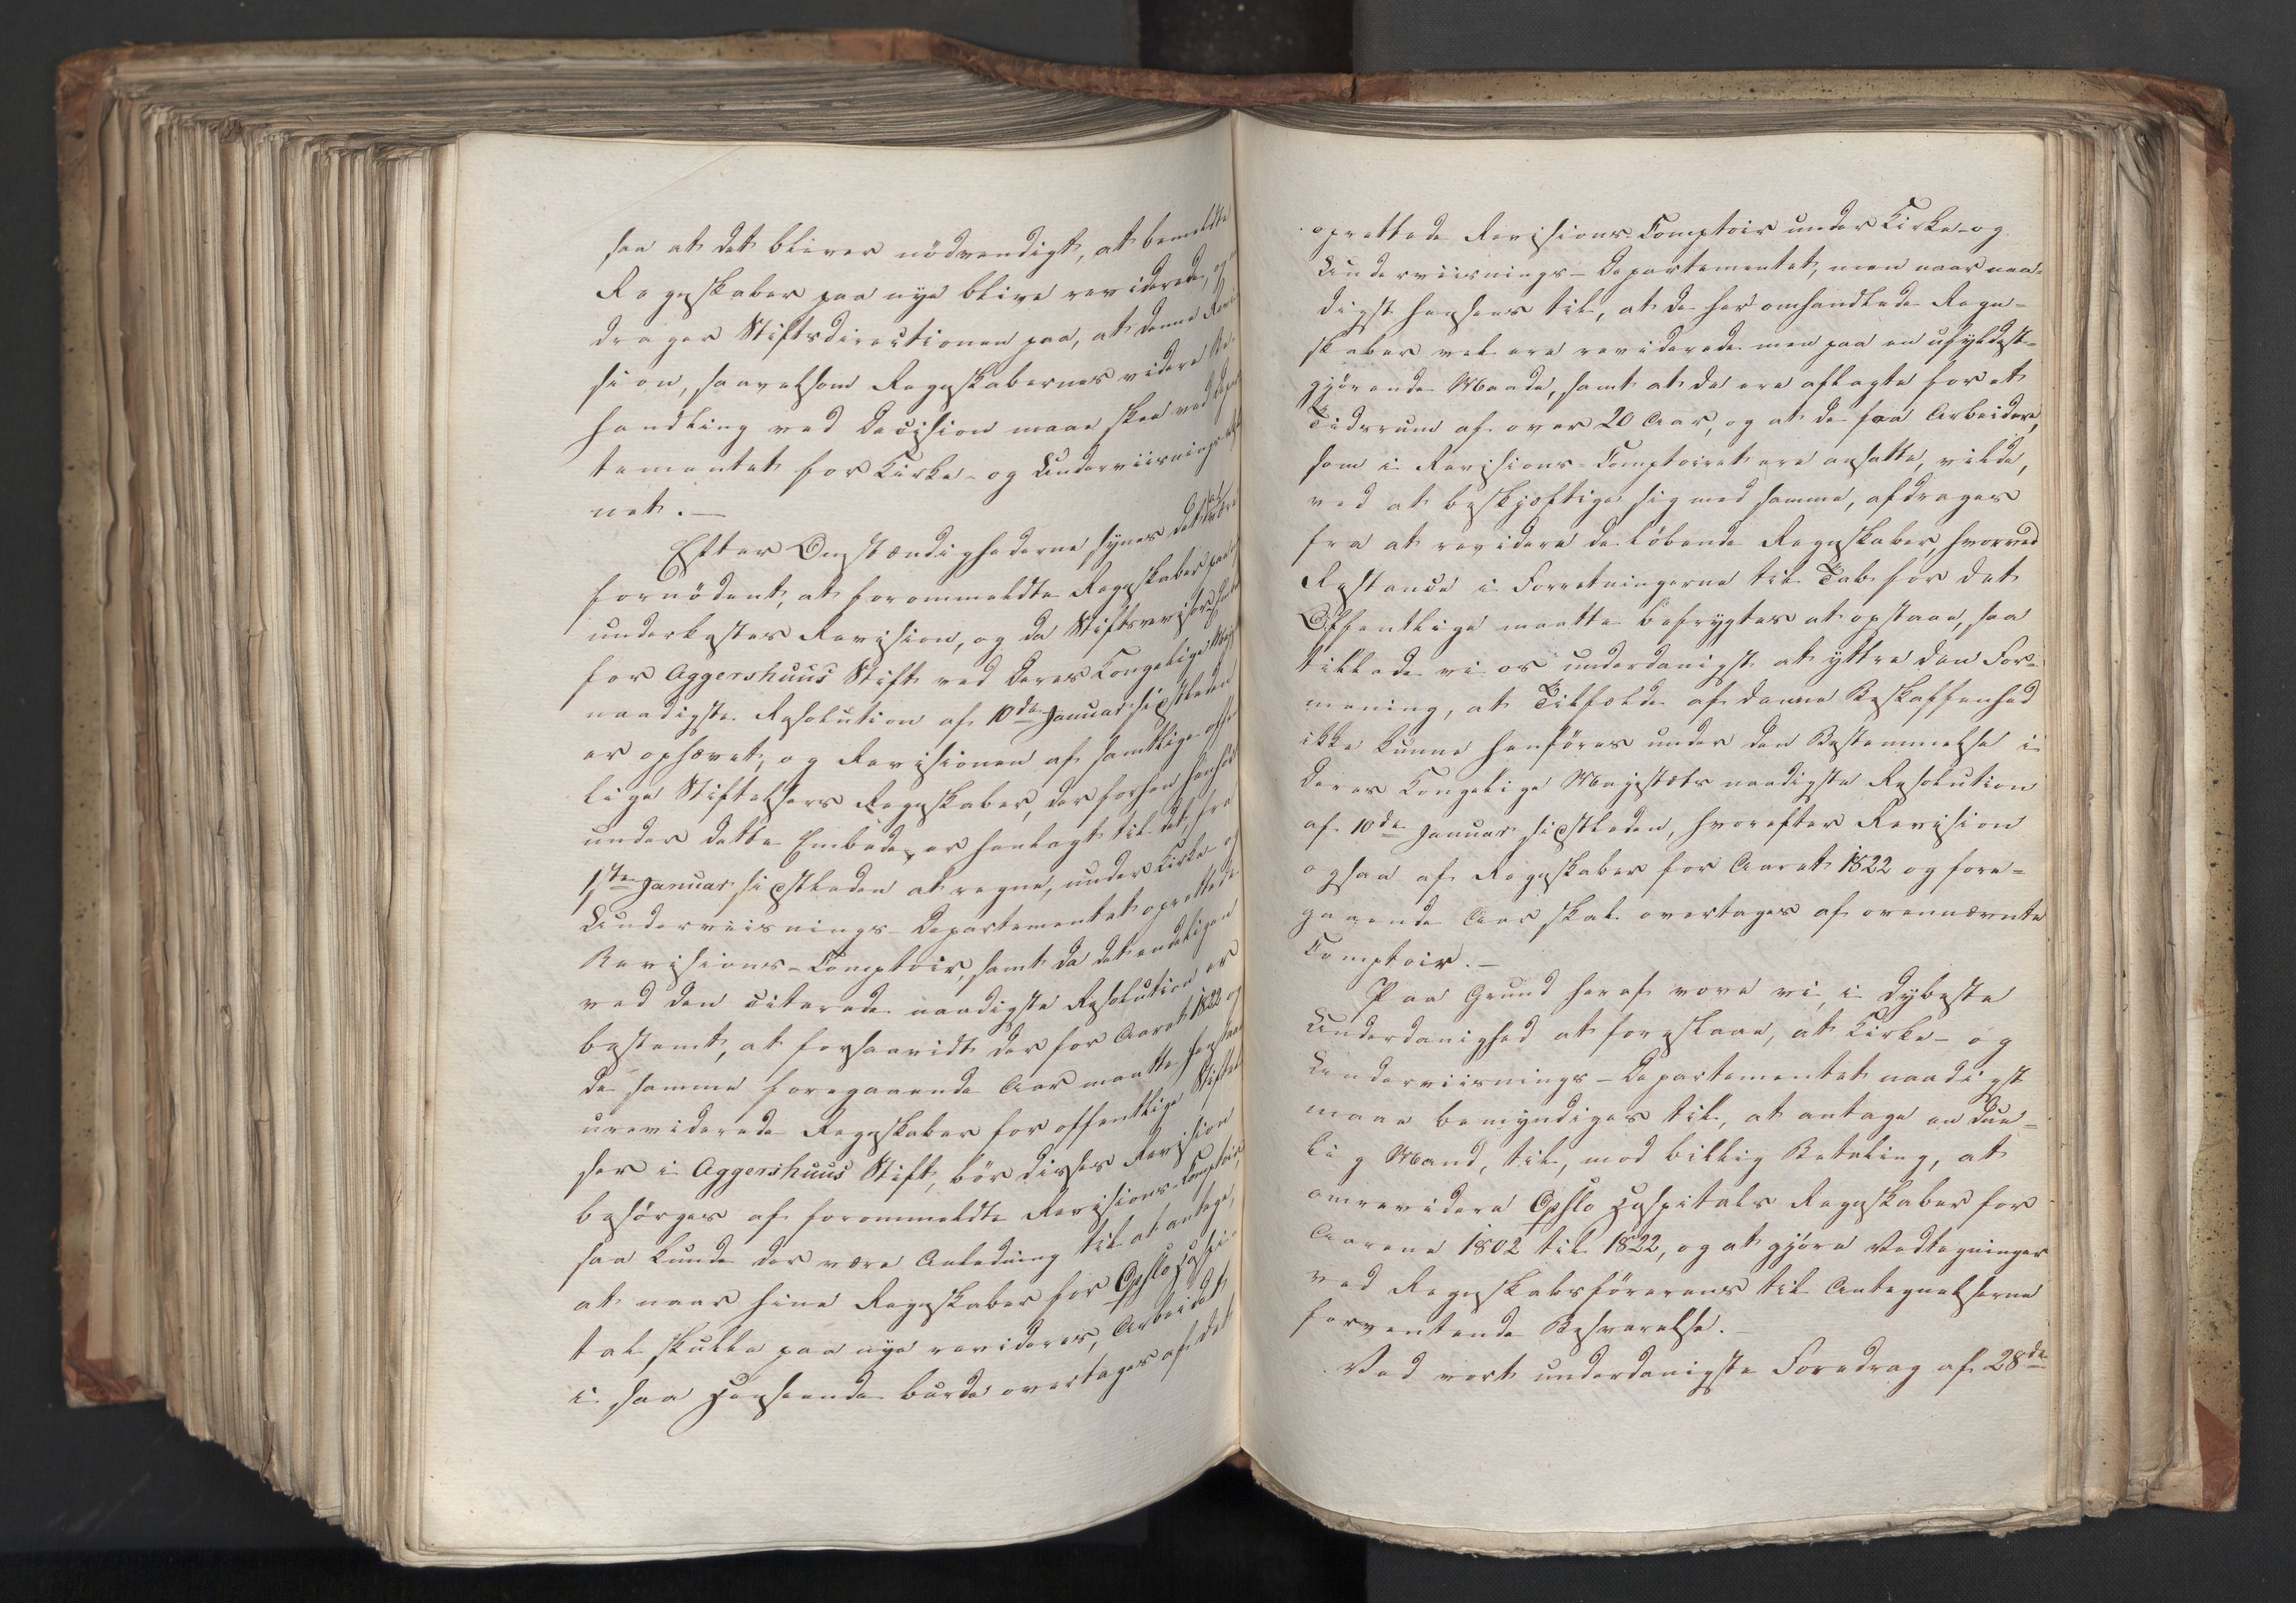 saa at det bliver nödvendigt, at bemeldte
Regnskaber paa nye blive reviderede, og
drager Stiftsdirectionen paa, at denne Revi
sion, saavelsom Regnskabernes videre Be-
handling ved Decision maae skee ved Depar
tementet for Kirke- og Underviisnings
net.—
Efter Omstændighederne synes det at være
fornödent, at forommeldte Regnskaber paa
underkastes Revision, og da Stiftsrevisor
for Aggershuus Stift ved Deres Kongelige Maj
naadigste Resolution af 10de Januar sidstleden
er ophævet, og Revisionen af samtlige offent
lige Stiftelsers Regnskaber, der forhen henhör
under dette Embede, er henlagt til det, fra
1ste Januar sidstleden at regne, under Kirke- og
Underviisnings-Departementet oprettede
Revisions-Comptoir, samt da det endeligen
ved den citerede naadigste Resolution er
bestemt, at forsaavidt der for Aaret 1822 og
de samme foregaaende Aar maatte henstaae
ureviderede Regnskaber for offentlige Stiftel
ser i Aggershuus Stift, bör disses Revision
besörges af forommeldte Revisions-Comptoir,
saa kunde der være Anledning til at antage,
at naar hine Regnskaber for Opslo Hospi-
tal skulle paa nye revideres, Arbeidet
i saa Henseende burde overtages af det
oprettede Revisions-Comptoir under Kirke- og
Underviisnings-Departementet, men naar naa-
digst hensees til, at de her omhandlede Regn-
skaber vel ere reviderede men paa en ufyldest-
gjörende Maade, samt at de ere aflagte for et
Tidsrum af over 20 Aar, og at de faa Arbeidere,
som i Revisions-Comptoiret ere ansatte, vilde,
ved at beskjæftige sig med samme, afdrages
fra at revidere de löbende Regnskaber, hvorved
Restance i Forretningerne til Tab for det
Offentlige maatte befrygtes at opstaae, saa
tillade vi os underdanigst at yttre den For-
mening, at Tilfælde af denne Beskaffenhed
ikke kunne henföres under den Bestemmelse i
Deres Kongelige Majestæts naadigste Resolution
af 10de Januar sidstleden, hvorefter Revision
ogsaa af Regnskaber for Aaret 1822 og fore-
gaaende Aar skal overtages af ovennævnte
Comptoir.—
Paa Grund heraf vove vi, i dybeste
Underdanighed at foreslaae, at Kirke- og
Underviisnings-Departementet naadigst
maae bemyndiges til, at antage en due-
lig Mand, til, mod billig Betaling, at
omrevidere Opslo Hospitals Regnskaber for
Aarene 1802 til 1822, og at gjöre Vedtegninger
ved Regnskabsförerens til Antegnelserne
forventende Besvarelse.—
Ved vort underdanigste Foredrag af 28de